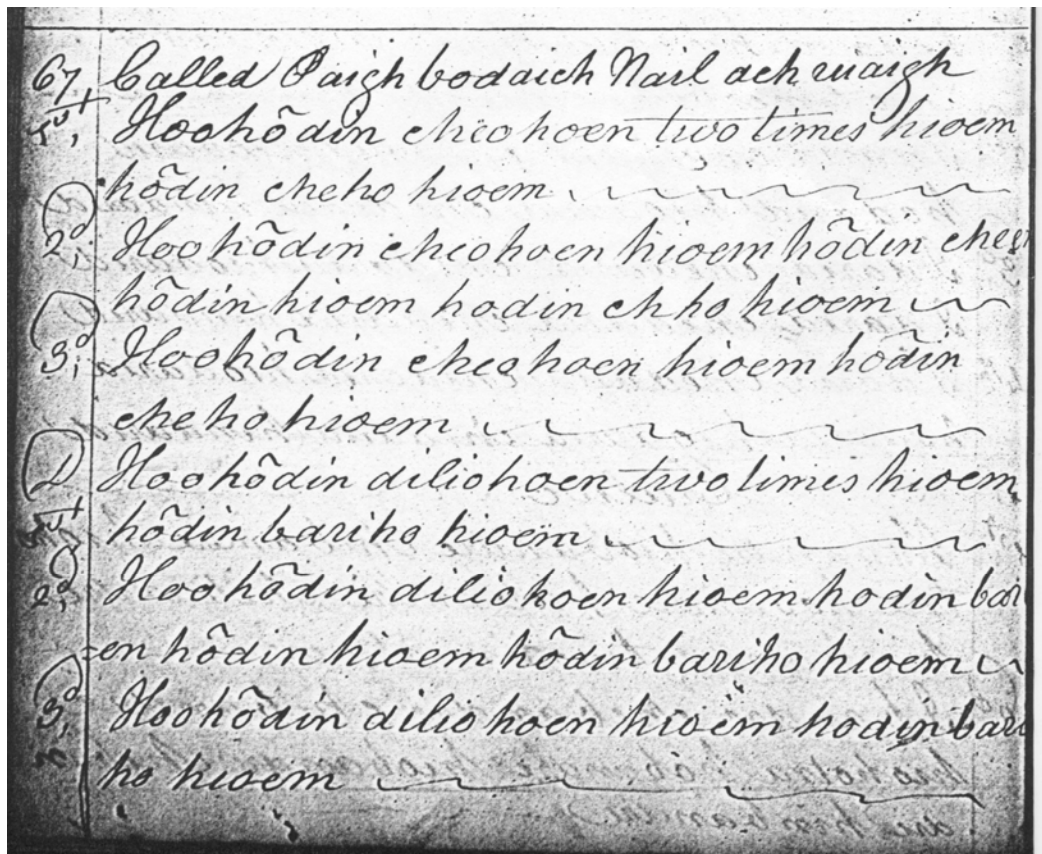 67, Called Paigh bodaich Nail ach ruaigh
1st, Hoohõdin checohoen two times hioem
hõdin cheho hioem
2d, Hoohõdin checohoen hioem hõdin
hõdin hioem hodin chho hioem
3d, Hoohõdin checohoen hioem hõdin
cheho hioem
D Hoohõdin diliohoen two times hioem
1st hõdin bariho hioem
2d, Hoohõdin diliohoen hioem hodin
=en hõdin hioem hõdin bariho hioem
3d, Hoohõdin diliohoen hioem hodin bari
ho hioem